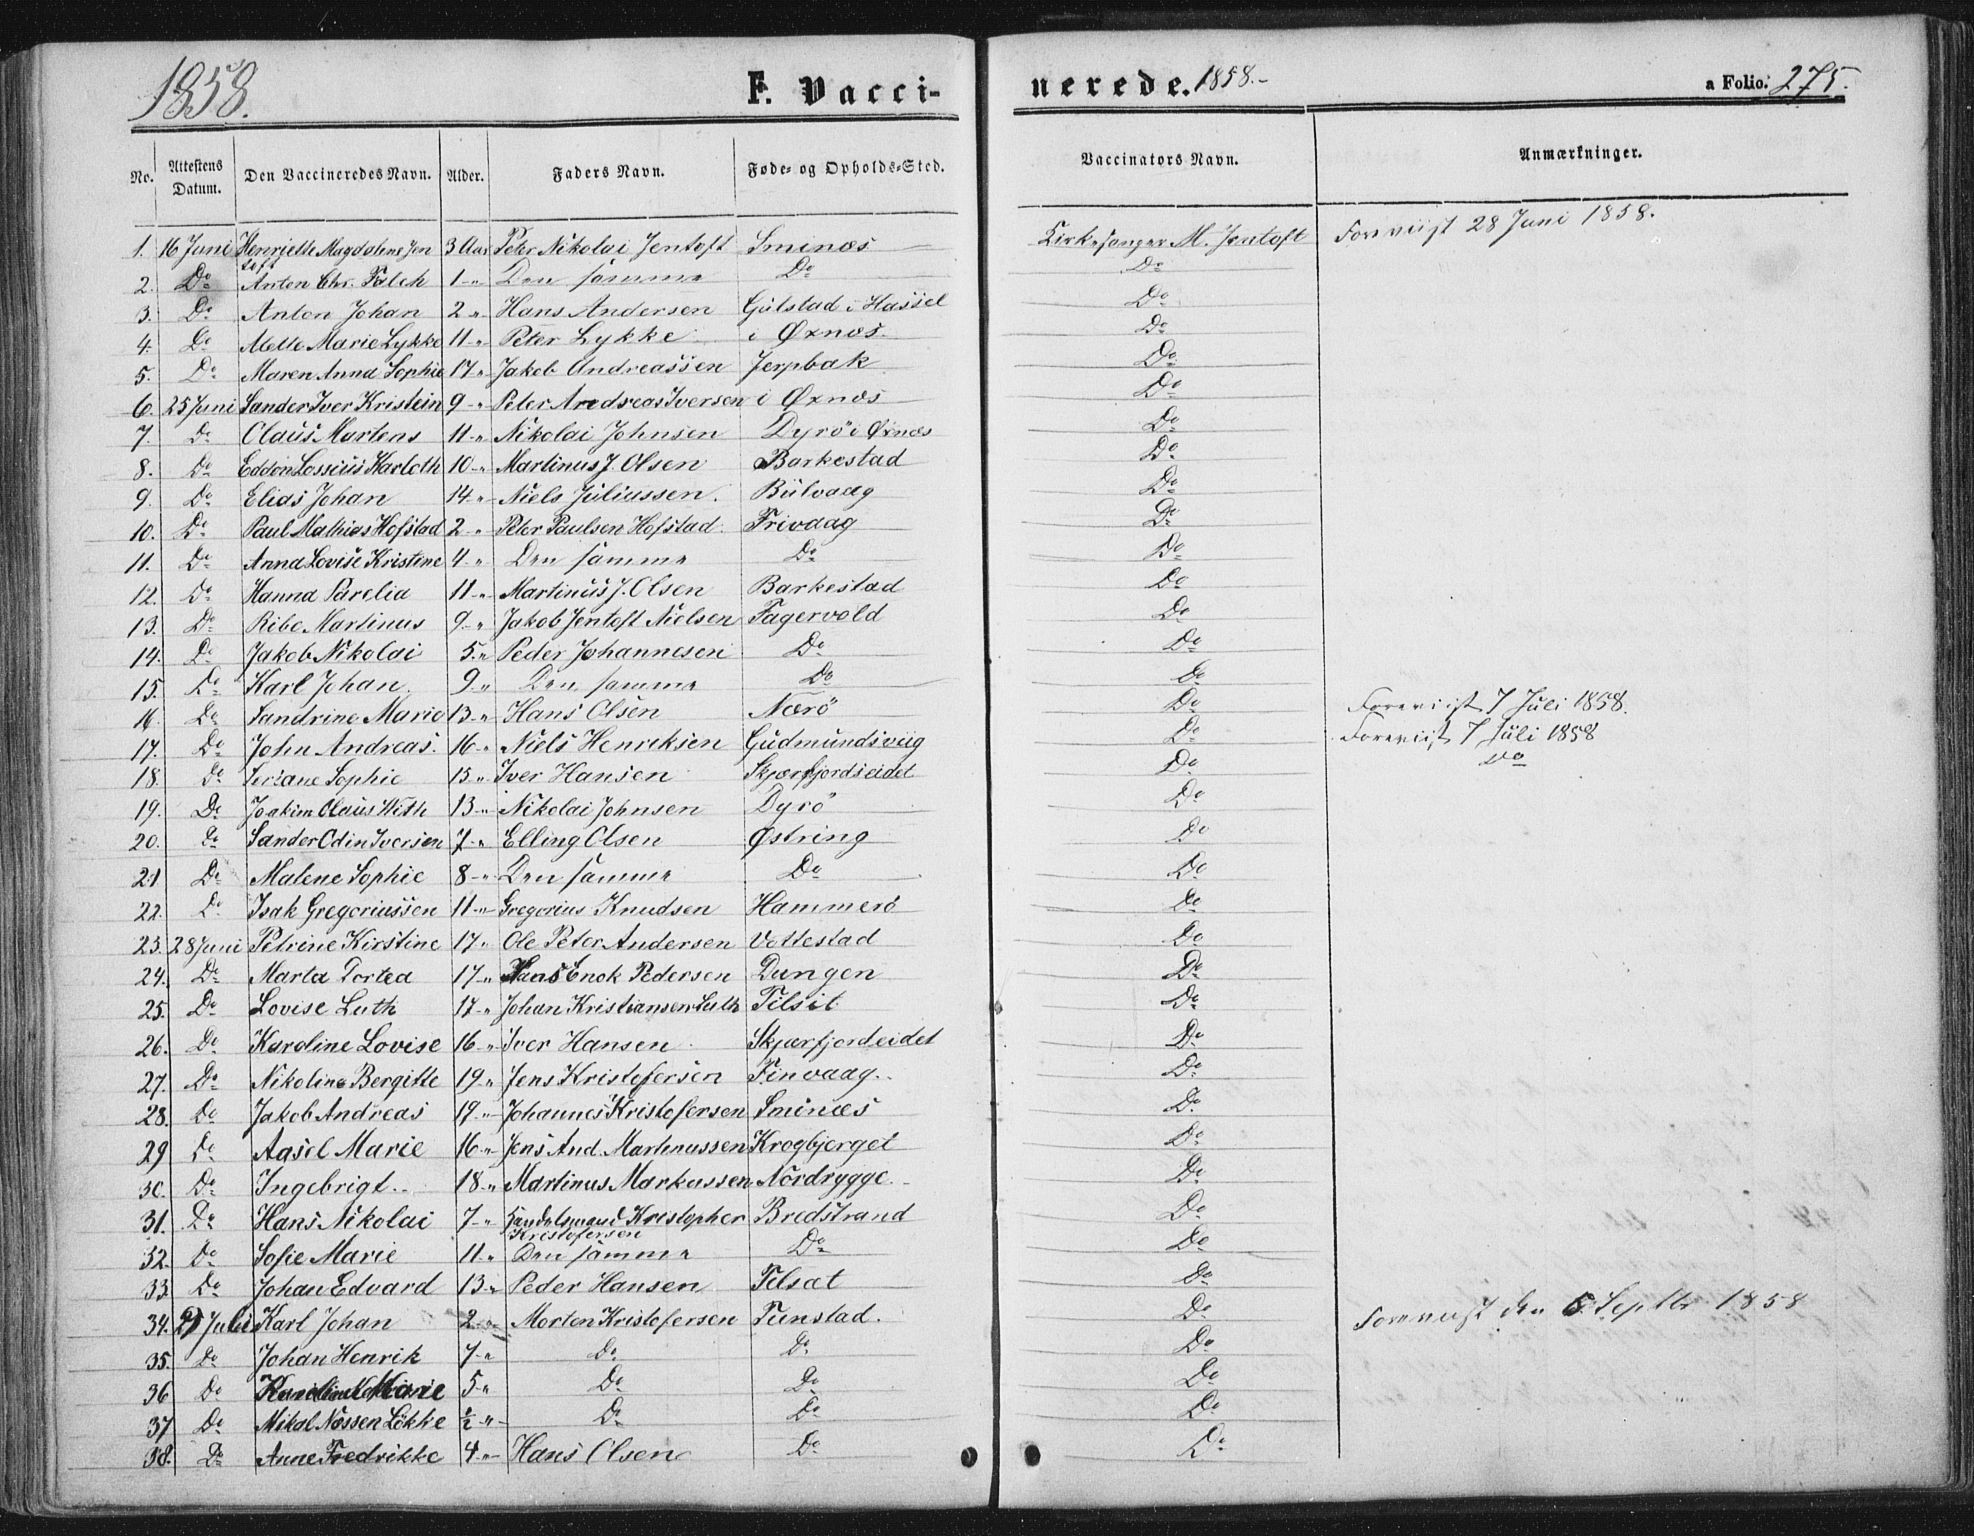 1858.
F. Vacci-
nerede. 1858.-
a Folio. 275.
No. Attestens Datum. Den Vaccineredes Navn. Alder. Faders Navn. Føde- og Opholds-Sted. Vaccinators Navn. Anmærkninger.
1. 16 Juni Henriette Magdalene Jentoft 3 Aar Peter Nikolai Jentoft Sminæs Kirkesanger M. Jentoft Foreviist 28 Juni 1858.
2. Do Anton Chr. Falch 1 " Den samme Do Do
3. Do Anton Johan 2 " Hans Andersen Gulstad i Hassel Do
4. Do Mette Marie Lykke 11 " Peter Lykke i Øxnæs Do
5. Do Maren Anna Sophie 17 " Jakob Andreassen Jerpbak Do
6. 25 Juni Sander Iver Kristein 9 " Peter Andreas Iversen i Øxnæs Do
7. Do Olaus Martens 11 " Nikolai Johnsen Dyrö i Øxnæs Do
8. Do Lossius Karloth 10 " Martinus J. Olsen Barkestad Do
9. Do Elias Johan 14 " Niels Juliussen. Bülvaag Do
10. Do Paul Mathias Hofstad 2 " Peter Paulsen Hofstad Frivaag Do
11. Do Anna Lovise Kristine 4 " Den samme Do Do
12. Do Hanna Parelia 11 " Martinus J. Olsen Barkestad Do
13. Do Ribe Martinus 9 " Jakob Jentoft Nielsen Fagervold Do
14. Do Jakob Nikolai 5 " Peder Johannesen Do Do
15. Do Karl Johan 9 " Den samme Do Do
16. Do Sandrine Marie 13 " Hans Olsen Nærö Do Foreviist 7 Juli 1858.
17. Do John Andreas. 16 " Niels Henriksen Gudmundsveig Do Foreviist 7 Juli 1858
18. Do Serzane Sophie 13 " Iver Hansen Skjærfjordseidet Do Do
19. Do Joakim Olaus With 13 " Nikolai Johnsen Dyrö Do
20. Do Sander Odin Iversen 7 " Elling Olsen Østring Do
21 Do Malene Sophie 8 " Den samme Do Do
22. Do Isak Gregoriussen 11 " Gregorius Knudsen Hammerö Do
23. 28 Juni Petrine Kirstine 17 " Ole Peter Andersen Vottestad Do
24. Do Marta Tortea 17 " Hans Enok Pedersen Dungen Do
25. Do Lovise Luth 17 " Johan Kristiansen Luth Tilsit Do
26. Do Karoline Lovise 16 " Iver Hansen Skjærfjordeidet Do
27. Do Nikoline Bergitte 19 " Jens Kristofersen Finvaag Do
28. Do Jakob Andreas 19 " Johannes Kristofersen Sminæs Do
29 Do Aasel Marie 16 " Jens And. Martinussen Krogbjerget Do
30. Do Ingebrigt 18 " Martinus Markussen Nordrygge Do
31. Do Hans Nikolai 7 " Handelsmand Kristopher Kristofersen Bredstrand Do
32. Do Sofie Marie 11 " Den samme Do Do
33. Do Johan Edvard 13 " Peder Hansen Tilsat Do
34. Juli Karl Johan 2 " Morten Kristofersen Tunstad. Do Foreviist den 5 Septbr 1858
35. Do Johan Henrik 7 " Do Do Do
36 Do Marie 5 " Do Do Do
37 Do Mikal Nossen Løkke ½ " Do Do Do
38. Do Anne Fredrikke 4 " Hans Olsen Do Do